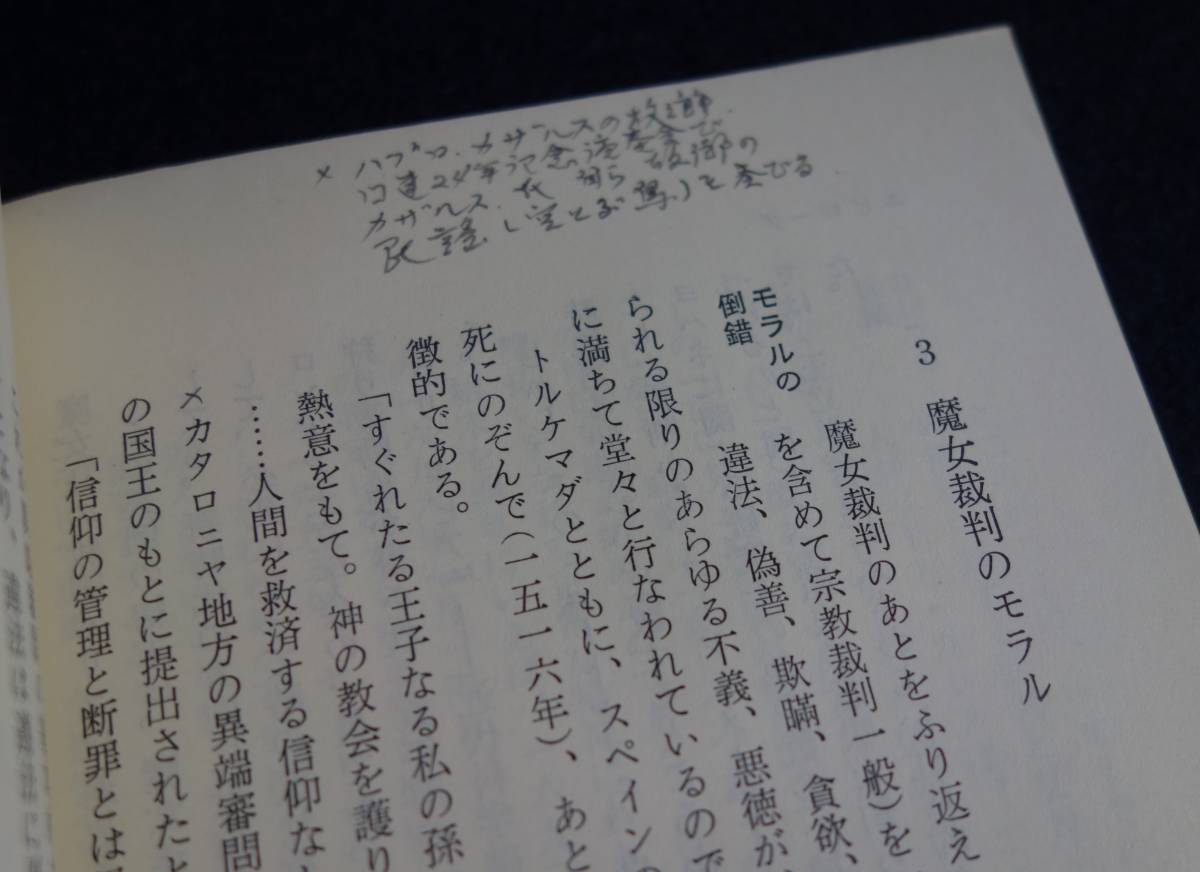 × パブロ・カザルスの故郷
口連24年記念演奏会で
カザルス氏自ら故郷の
民謡「空とぶ鳥」を奏でる
3 魔女裁判のモラル
モラルの
倒錯
魔女裁判のあとをふり返え
を含めて宗教裁判一般）を
違法、偽善、欺瞞、貪欲、
られる限りのあらゆる不義、悪徳が、
に満ちて堂々と行なわれているので
トルケマダとともに、スペインの
死にのぞんで（一五一六年）、あと
徴的である。
「すぐれたる王子なる私の孫
熱意をもて。神の教会を護り
……人間を救済する信仰な
×カタロニヤ地方の異端審問
の国王のもとに提出されたと
「信仰の管理と断罪とは